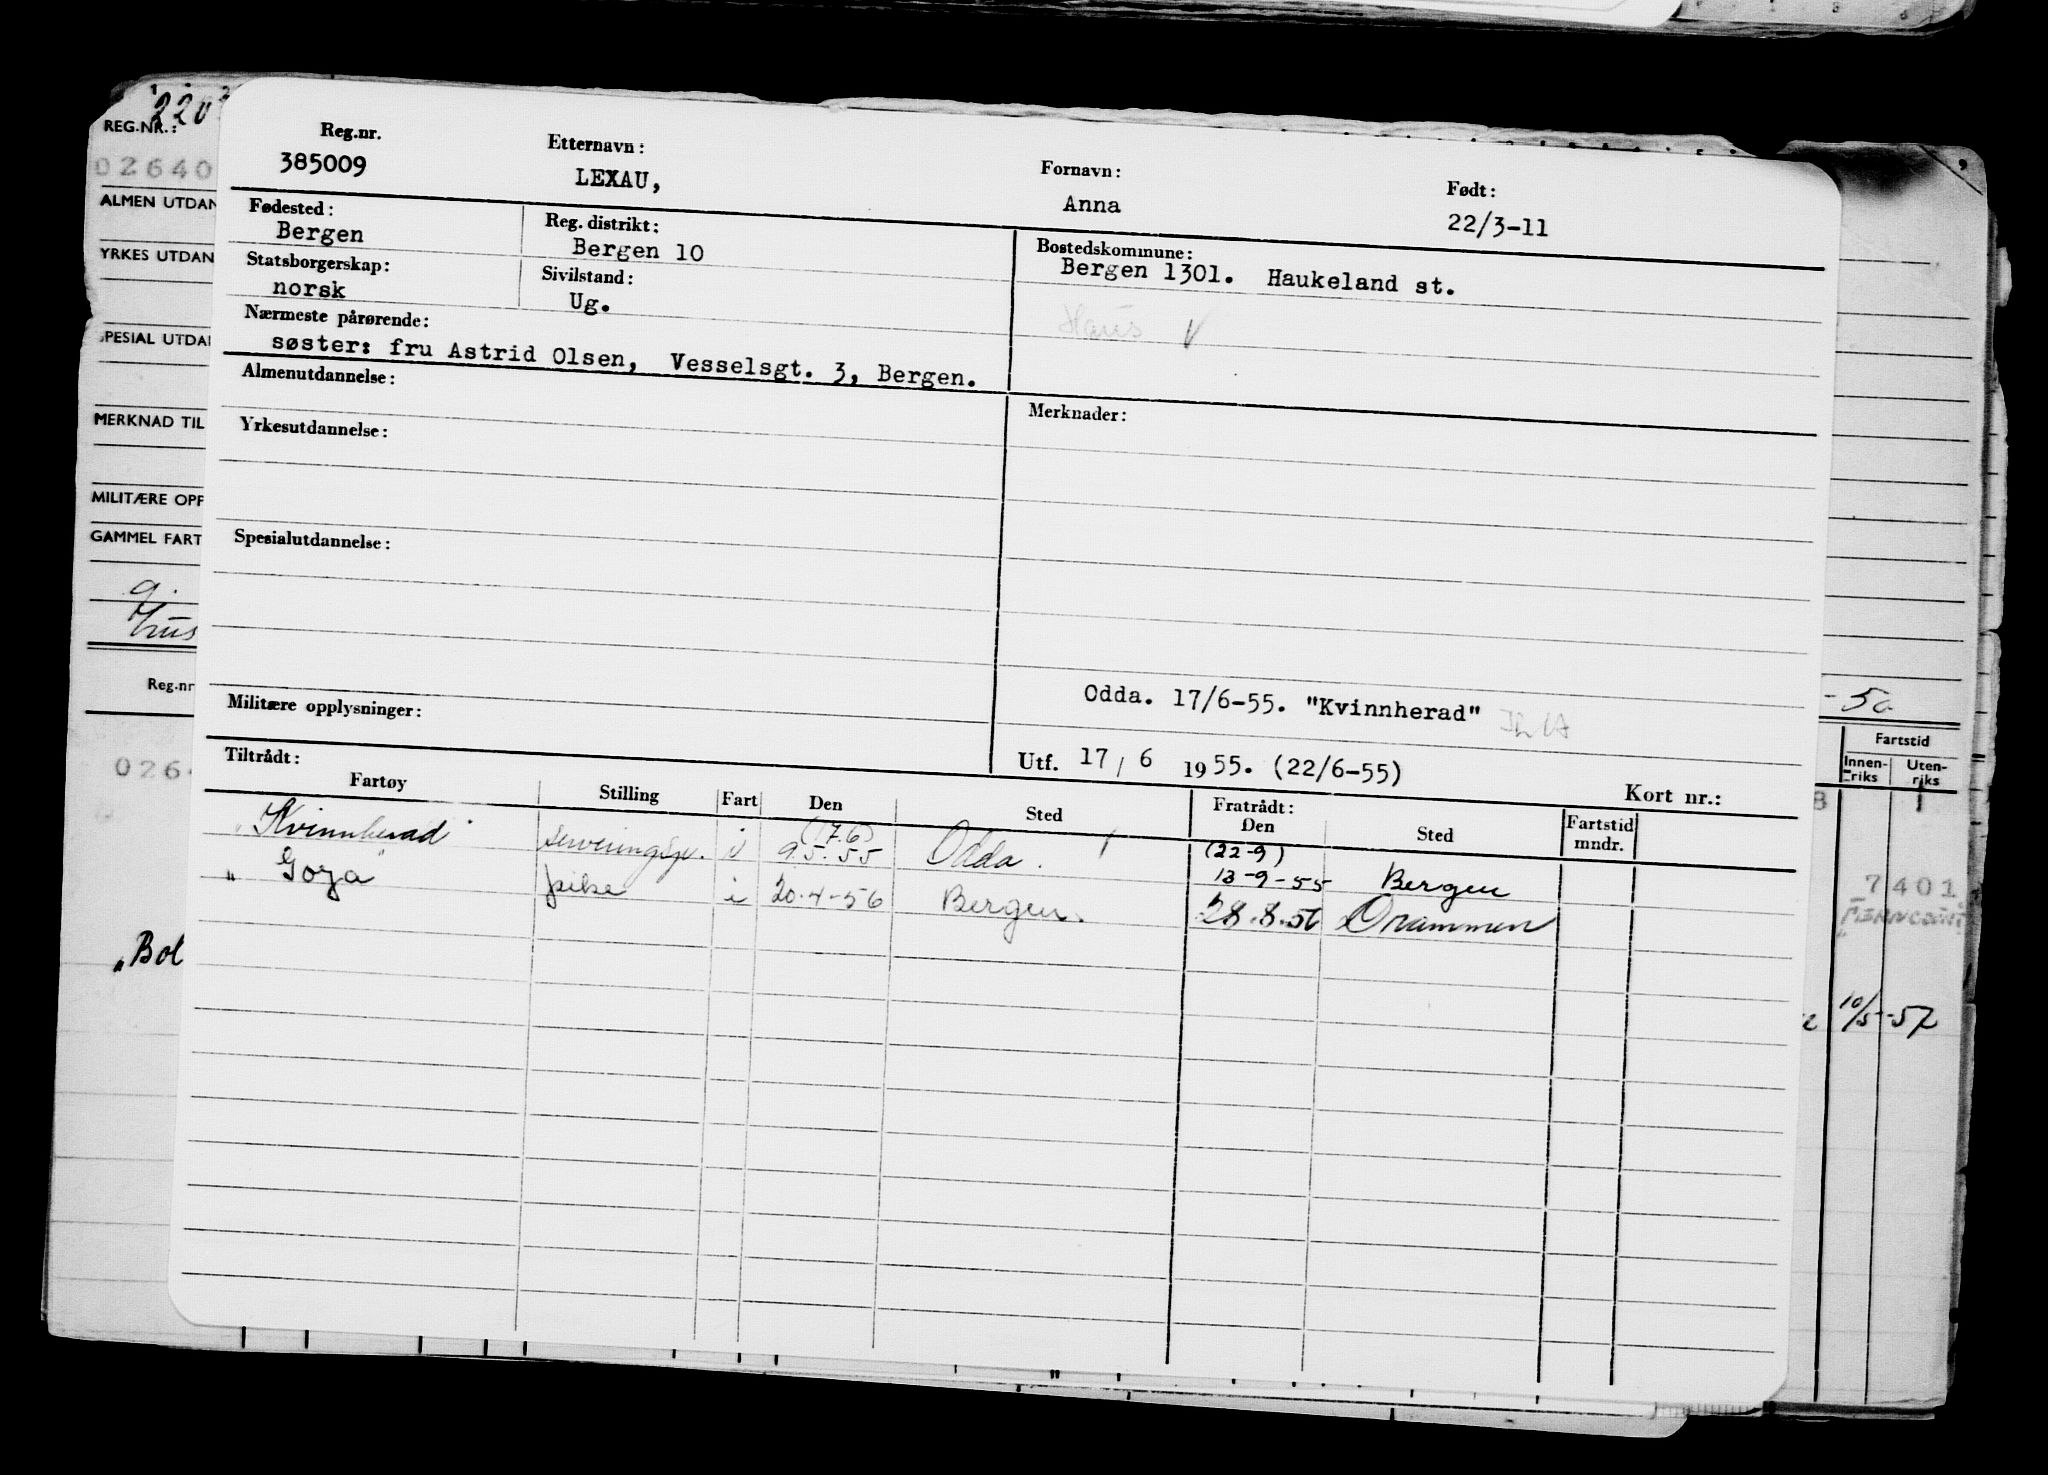 220
REG.NR.:
02640
ALMEN UTDAN
YRKES UTDAN
SPESIAL UTDA
MERKNAD TIL
MILITÆRE OPP
GAMMEL FART
g.
Reg.nr
026
„Bol
Reg.nr.
385009
Etternavn:
LEXAU,
Fornavn:
Anna
Født:
22/3-11
Fødested:
Bergen
Reg. distrikt:
Bergen 10
Bostedskommune:
Bergen 1301. Haukeland st.
Haus V
Statsborgerskap:
norsk
Sivilstand:
Ug.
Nærmeste pårørende:
søster: fru Astrid Olsen, Vesselsgt. 3, Bergen.
Almenutdannelse:
Merknader:
Yrkesutdannelse:
Spesialutdannelse:
Odda. 17/6-55. "Kvinnherad"
Militære opplysninger:
Utf. 17/6 1955. (22/6-55)
Kort nr.:
Tiltrådt:
Fartøy Stilling Fart Den Sted Fratrådt: Den Sted Fartstid mndr.
(17.6) (22-9)
"Kvinnherad" serveringspi. i 9.5.55 Odda. 13-9-55 Bergen
" Goya" pike i 20.4-56 Bergen. 28.8.56 Drammen
- 50
Fartstid
Innen-riks Uten-riks
8 1
7401
10/5-57